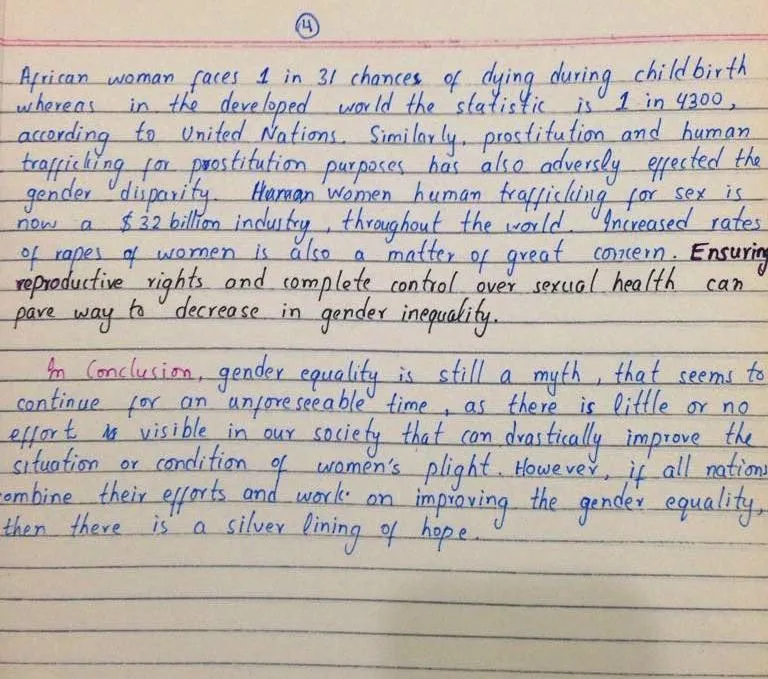 4
African woman faces 1 in 31 chances of dying during childbirth
whereas in the developed world the statistic is 1 in 4300,
according to United Nations. Similarly, prostitution and human
trafficking for prostitution purposes has also adversly effected the
gender disparity. Human Women human trafficking for sex is
now a $32 billion industry, throughout the world. Increased rates
of rapes of women is also a matter of great concern. Ensuring
reproductive rights and complete control over sexual health can
pave way to decrease in gender inequality.
In Conclusion, gender equality is still a myth, that seems to
continue for an unforeseeable time, as there is little or no
effort is visible in our society that can drastically improve the
situation or condition of women's plight. However, if all nations
combine their efforts and work on improving the gender equality,
then there is a silver lining of hope.